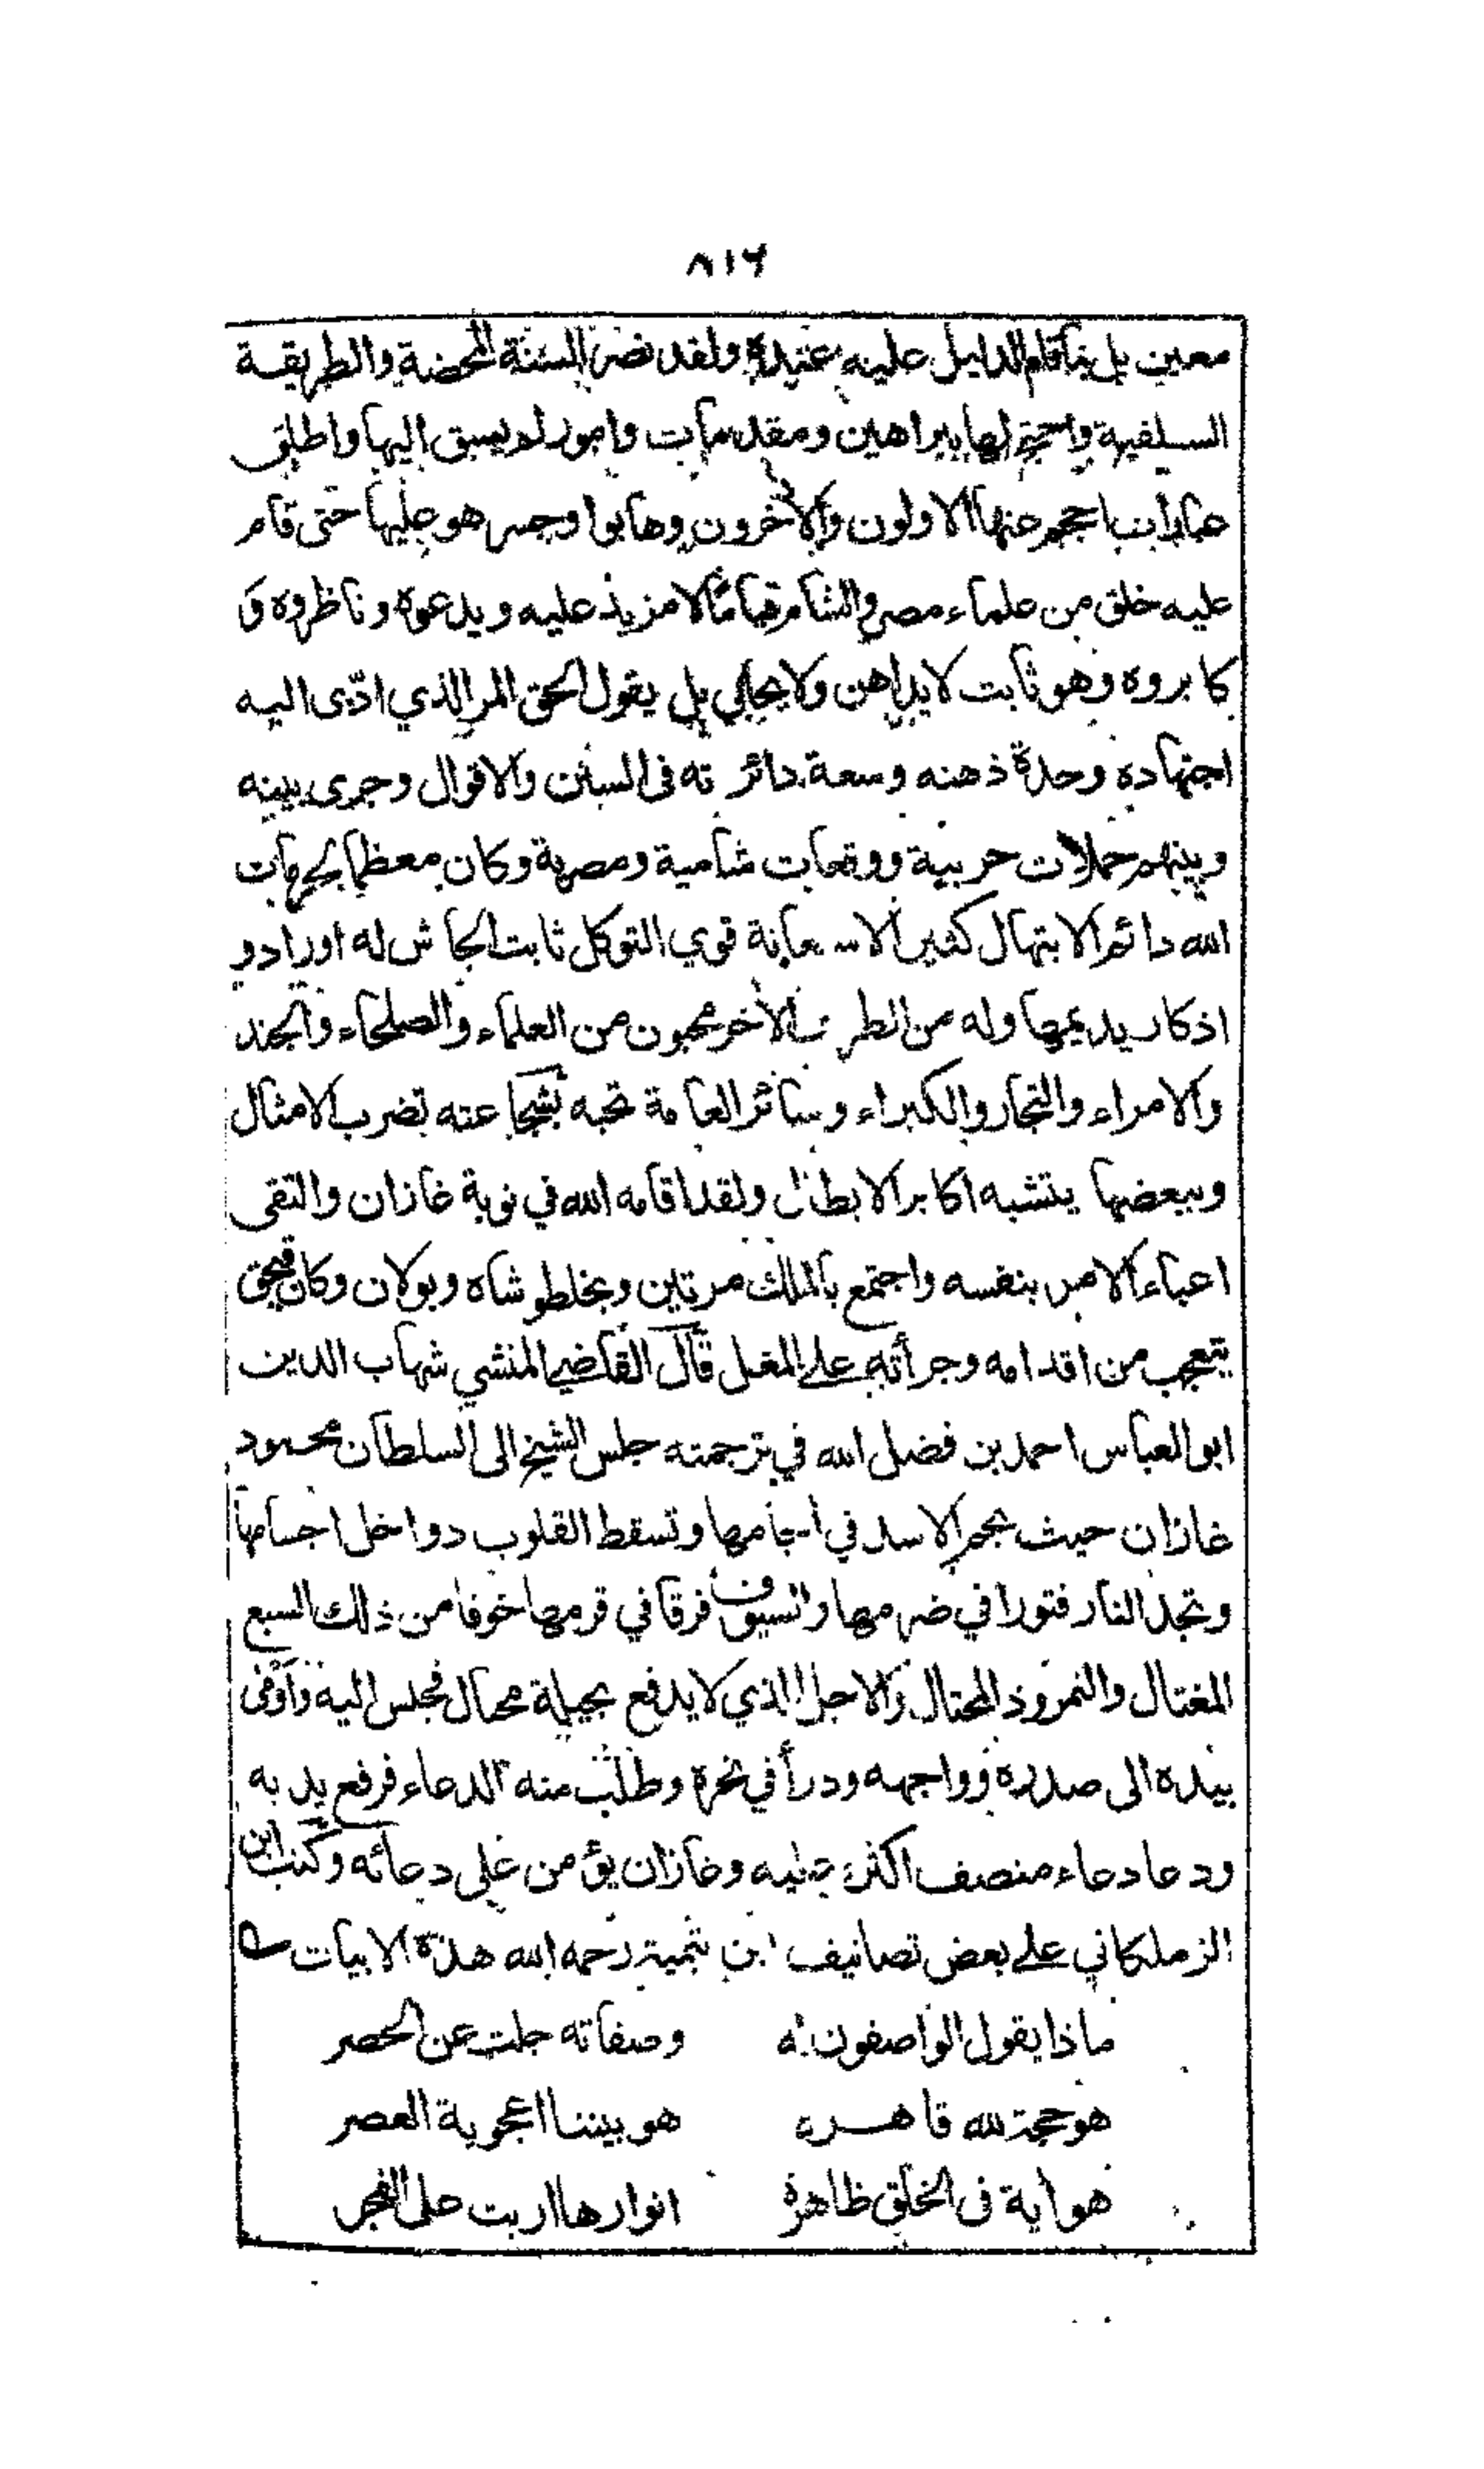 ٨١٦
معين بل بما قام الدليل عليه عنده ولقد نصر السنة المحضة والطريقة
السلفية واحتج لها ببراهين ومقدمات وامور لم يسبق اليها واطلق
عبارات احجم عنها الاولون والآخرون وهابوا وجسر هو عليها حتى قام
عليه خلق من علماء مصر والشام قياما لا مزيد عليه وبدعوه وناظروه و
كابروه وهو ثابت لا يداهن ولا يحابي بل يقول الحق المر الذي ادّى اليه
اجتهاده وحدة ذهنه وسعة دائرته فى السنن والاقوال وجرى بينه
وبينهم حملات حربية ووقعات شامية ومصرية وكان معظما لحرمات
الله دائم الابتهال كثير الاستعانة قوي التوكل ثابت الجاش له اوراد و
اذكار يديمها وله من الطرف الآخر محبون من العلماء والصلحاء والجند
والامراء والتجار والكبراء وسائر العامة تحبه بشجاعته تضرب الامثال
وببعضها يتشبه اكابر الابطال ولقد اقامه الله في نوبة غازان والتقى
اعباء الامر بنفسه واجتمع بالملك مرتين وبخلطو شاه وبولان وكان قبجق
يتعجب من اقدامه وجرأته على المغل قال القاضي المنشي شهاب الدين
ابو العباس احمد بن فضل الله في ترجمته جلس الشيخ الى السلطان محمود
غازان حيث تجم الاسد في اجامها وتسقط القلوب دواخل اجسامها
وتجد النار فتورا في ضرمها والسيوف فرقا في قرمها خوفا من ذلك السبع
المغتال والنمروذ المحتال والاجل الذي لا يدفع بحيلة محتال فجلس اليه واومى
بيده الى صدره وواجهه ودرأ في نحره وطلب منه الدعاء فرفع يديه
ودعا دعاء منصف اكثره عليه وغازان يؤمن على دعائه وكتب ابن
الزملكاني على بعض تصانيف ابن تيمية رحمه الله هذه الابيات
ماذا يقول الواصفون له وصفاته جلت عن الحصر
هو حجة لله قاهره هو بيننا اعجوبة العصر
هو آية فى الخلق ظاهرة انوارها اربت على الفجر